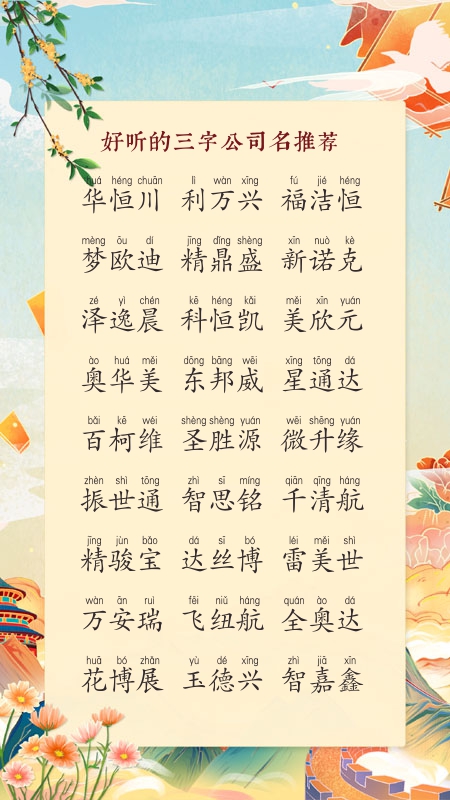 好听的三字公司名推荐
huá héng chuān lì wàn xīng fú jié héng
华恒川 利万兴 福洁恒
mèng ōu dí jīng dǐng shèng xīn nuò kè
梦欧迪 精鼎盛 新诺克
zé yì chén kē héng kǎi měi xīn yuán
泽逸晨 科恒凯 美欣元
ào huá měi dōng bāng wēi xīng tōng dá
奥华美 东邦威 星通达
bǎi kē wéi shèng shèng yuán wēi shēng yuán
百柯维 圣胜源 微升缘
zhèn shì tōng zhì sī míng qiān qīng háng
振世通 智思铭 千清航
jīng jùn bǎo dá sī bó léi měi shì
精骏宝 达丝博 雷美世
wàn ān ruì fēi niǔ háng quán ào dá
万安瑞 飞纽航 全奥达
huā bó zhǎn yù dé xīng zhì jiā xīn
花博展 玉德兴 智嘉鑫